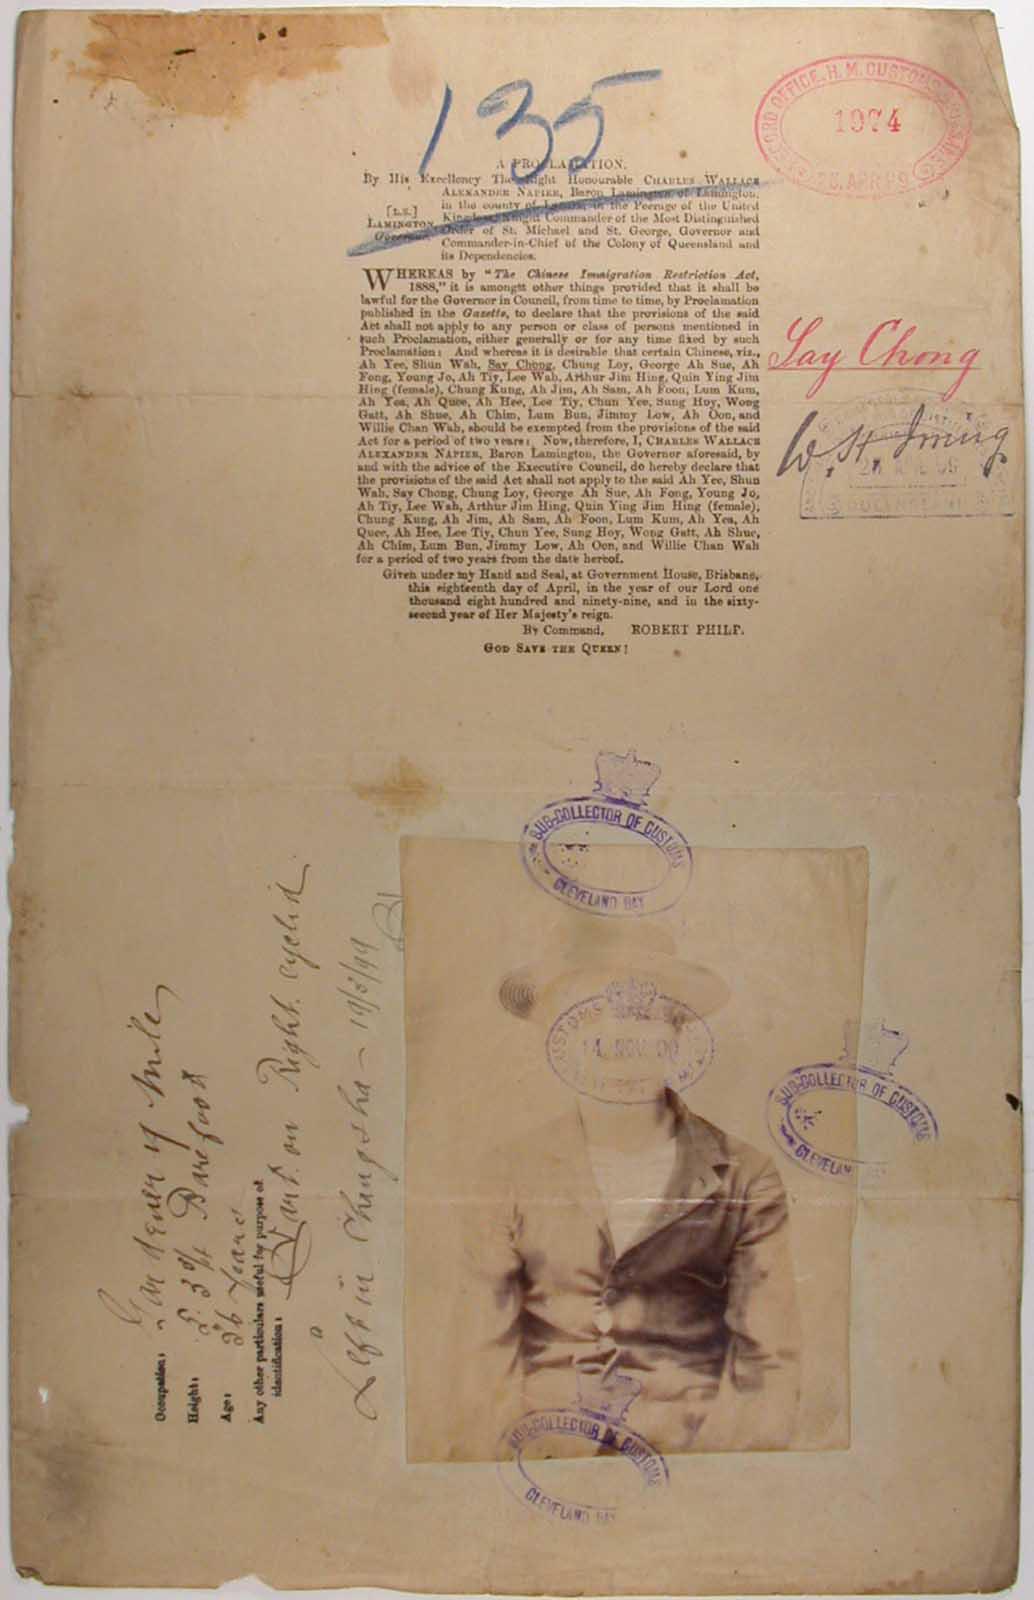 135
RECORD OFFICE, H. M. CUSTOMS
1974
A PROCLAMATION.
By His Excellency The Right Honourable CHARLES WALLACE
ALEXANDER NAPIER, Baron Lamington, of Lamington,
in the county of Lanark, in the Peerage of the United
[L.S.]
Kingdom, Knight Commander of the Most Distinguished
LAMINGTON,
Order of St. Michael and St. George, Governor and
Governor.
Commander-in-Chief of the Colony of Queensland and
its Dependencies.
WHEREAS by "The Chinese Immigration Restriction Act,
1888," it is amongst other things provided that it shall be
lawful for the Governor in Council, from time to time, by Proclamation
published in the Gazette, to declare that the provisions of the said
Act shall not apply to any person or class of persons mentioned in
such Proclamation, either generally or for any time fixed by such
Proclamation: And whereas it is desirable that certain Chinese, viz.,
Ah Yee, Shun Wah, Say Chong, Chung Loy, George Ah Sue, Ah
Fong, Young Jo, Ah Tiy, Lee Wah, Arthur Jim Hing, Quin Ying Jim
Hing (female), Chung Kung, Ah Jim, Ah Sam, Ah Foon, Lum Kum,
Ah Yea, Ah Quee, Ah Hee, Lee Tiy, Chun Yee, Sung Hoy, Wong
Gatt, Ah Shue, Ah Chim, Lum Bun, Jimmy Low, Ah Oon, and
Willie Chan Wah, should be exempted from the provisions of the said
Act for a period of two years: Now, therefore, I, CHARLES WALLACE
ALEXANDER NAPIER, Baron Lamington, the Governor aforesaid, by
and with the advice of the Executive Council, do hereby declare that
the provisions of the said Act shall not apply to the said Ah Yee, Shun
Wah, Say Chong, Chung Loy, George Ah Sue, Ah Fong, Young Jo,
Ah Tiy, Lee Wah, Arthur Jim Hing, Quin Ying Jim Hing (female),
Chung Kung, Ah Jim, Ah Sam, Ah Foon, Lum Kum, Ah Yea, Ah
Quee, Ah Hee, Lee Tiy, Chun Yee, Sung Hoy, Wong Gatt, Ah Shue,
Ah Chim, Lum Bun, Jimmy Low, Ah Oon, and Willie Chan Wah
for a period of two years from the date hereof.
Given under my Hand and Seal, at Government House, Brisbane,
this eighteenth day of April, in the year of our Lord one
thousand eight hundred and ninety-nine, and in the sixty-
second year of Her Majesty's reign.
By Command, ROBERT PHILP.
GOD SAVE THE QUEEN!
Say Chong
W St
Occupation: Gardener
Height: 5. 3 Barefoot
Age: 36 Years
Any other particulars useful for purpose of
identification: on Right Eyelid
Left in Changsha - 19/5/99
SUB-COLLECTOR OF CUSTOMS
CLEVELAND BAY
CUSTOMS
14 NOV
SUB-COLLECTOR OF CUSTOMS
CLEVELAND BAY
SUB-COLLECTOR OF CUSTOMS
CLEVELAND BAY